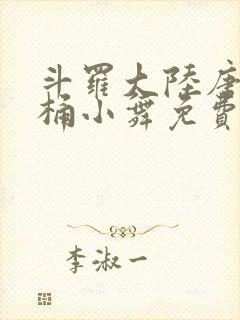 斗羅大陸唐
桶小舞免費
李淑一